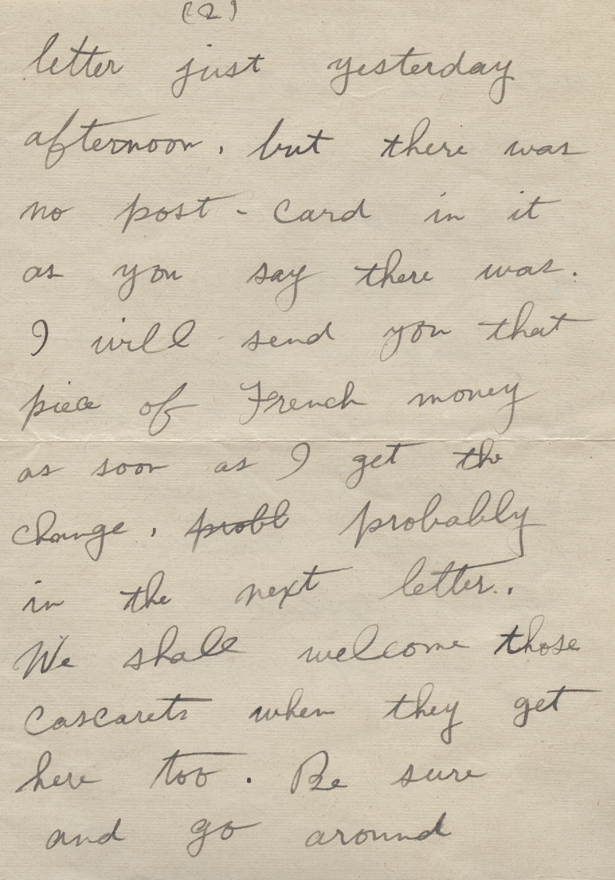 (2)
letter just yesterday
afternoon, but there was
no post-card in it
as you say there was.
I will send you that
piece of French money
as soon as I get the
change, probl probably
in the next letter.
We shall welcome those
Cascarets when they get
here too. Be sure
and go around